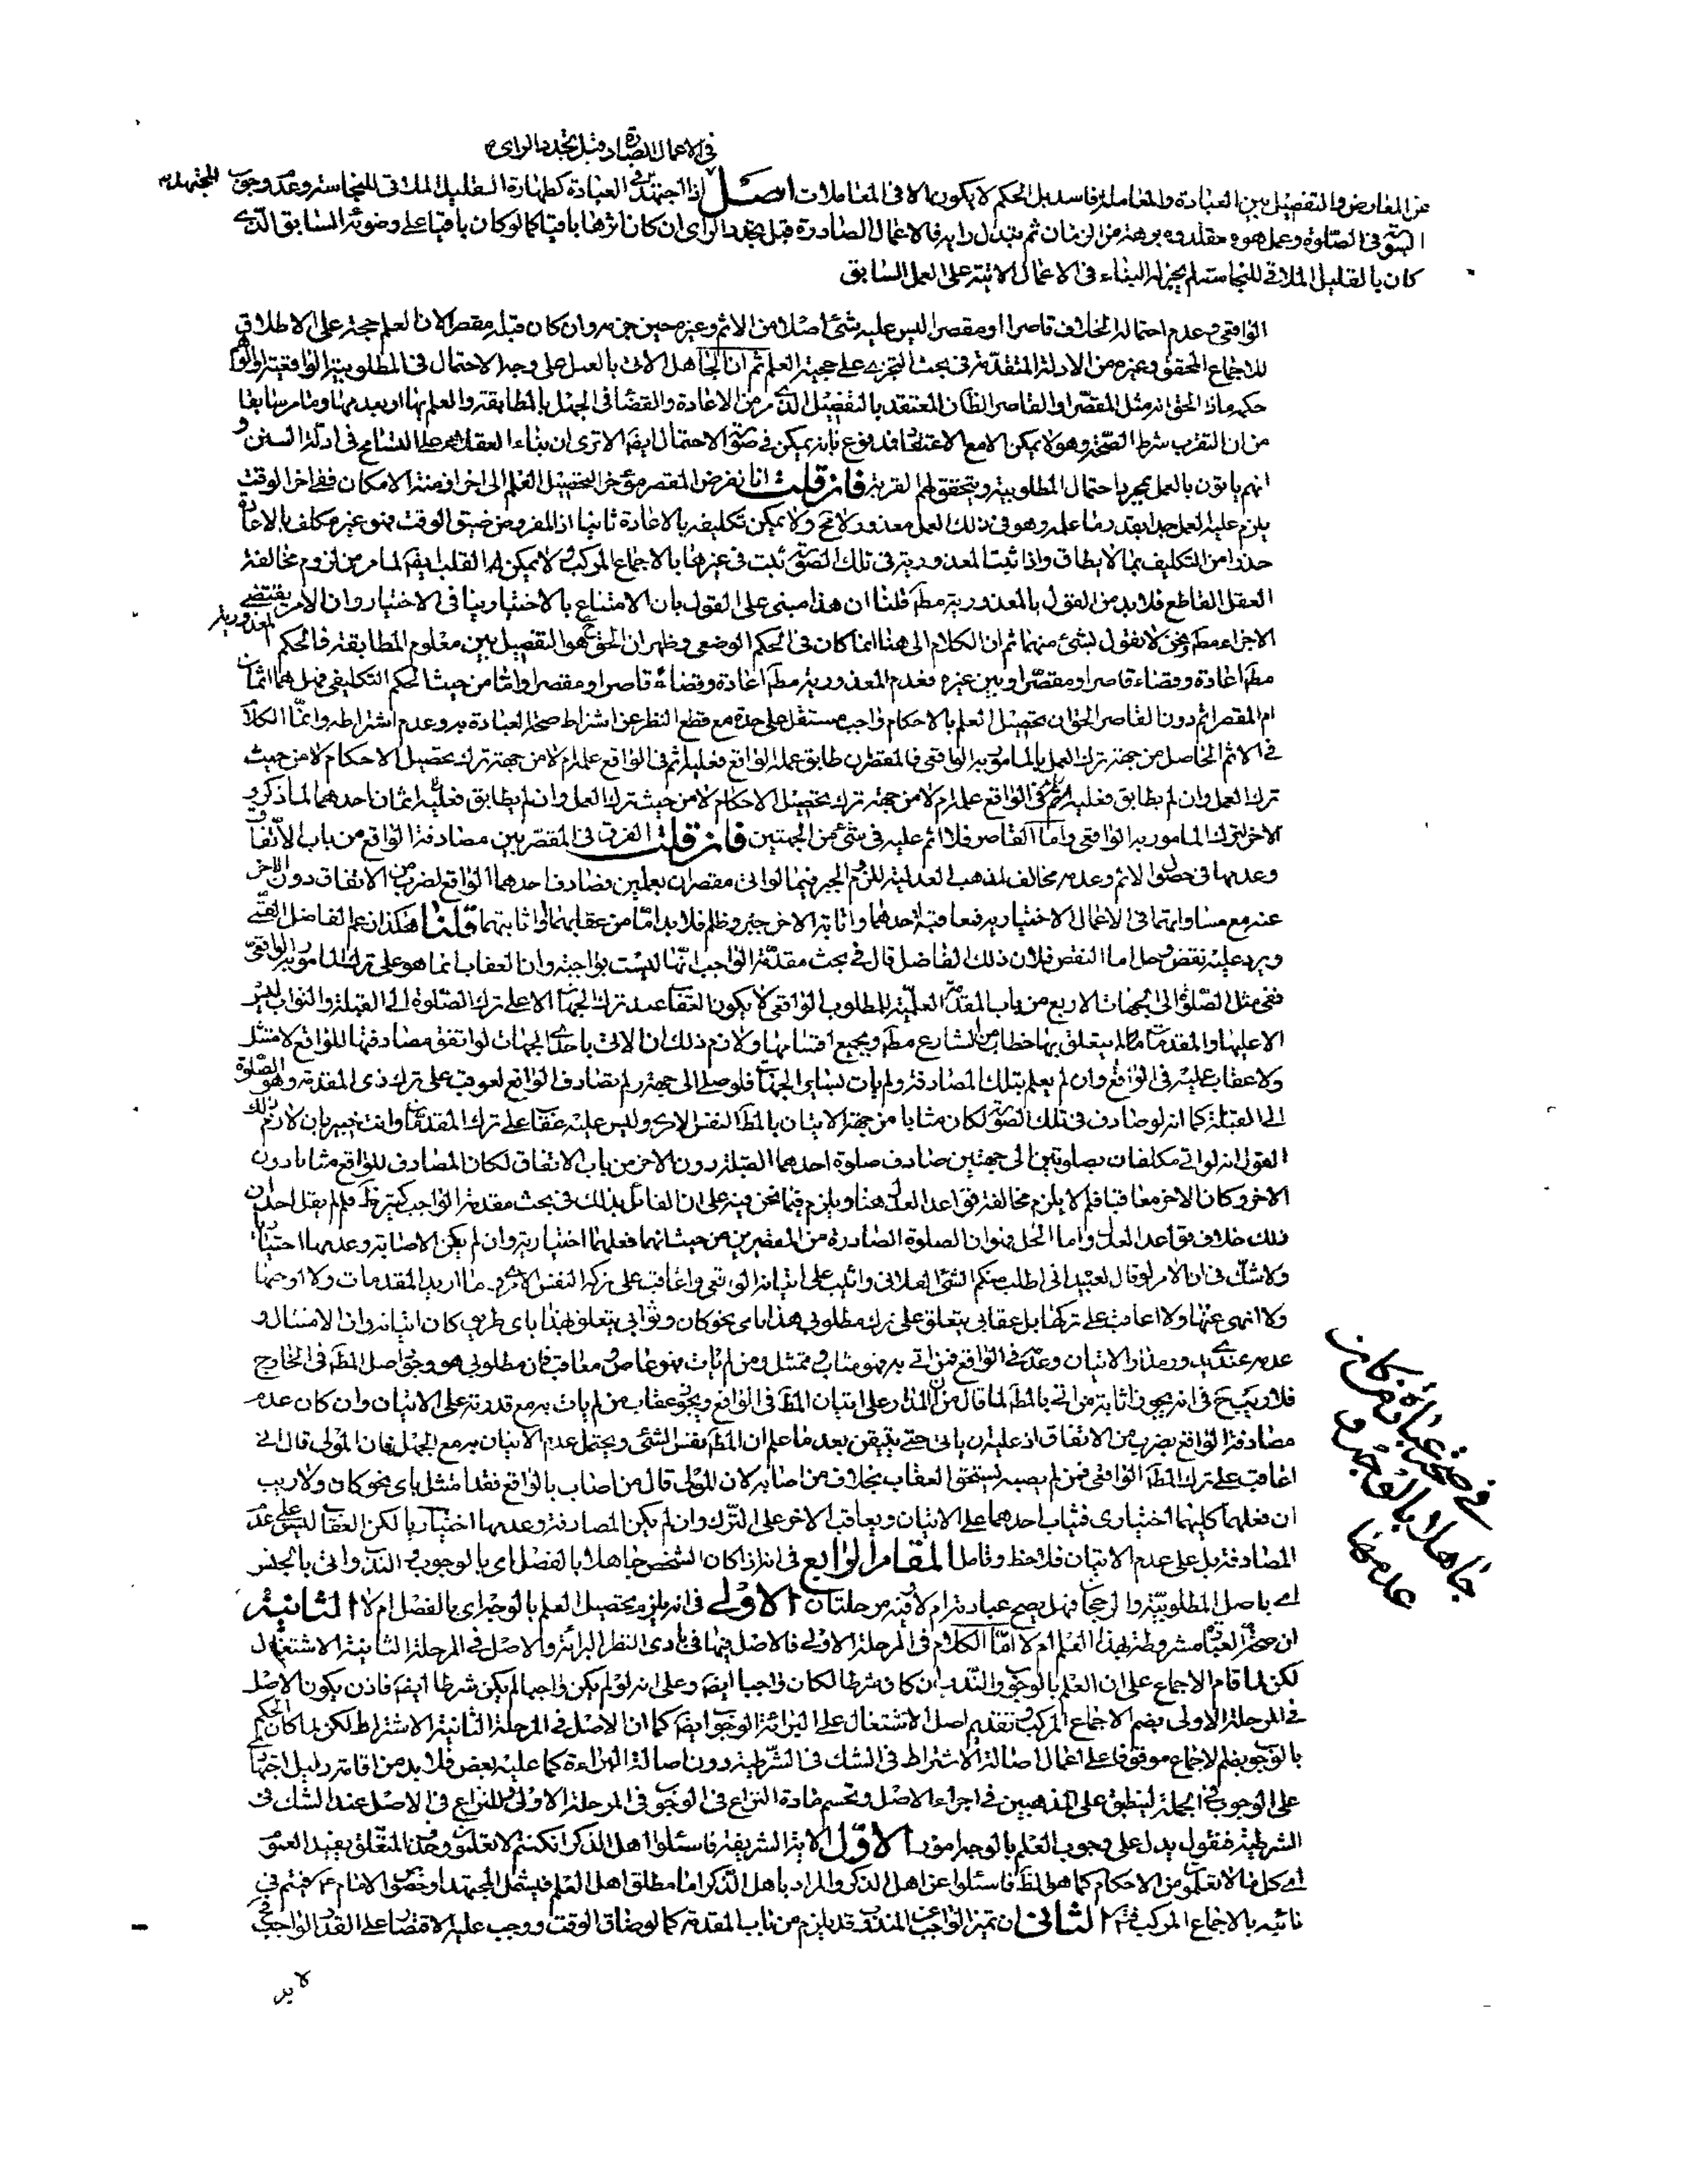 في الاعمال الصادرة قبل تجدد الراى
عن المعارض والتفصيل بين العبادة والمعاملة فاسد بل الحكم لا يكون الا فى المعاملات اصل اذا اجتهد في العبادة كطهارة القليل الملاقى للنجاسة وعدم وجوب
السورة فى الصلوة وعمل هو ومقلدوه برهة من الزمان ثم تبدل رايه فالاعمال الصادرة قبل تجدد الراى ان كان اثرها باقيا كما لو كان باقيا على وضوئه السابق الذى
كان بالقليل الملاقى للنجاسة لم يجز له البناء فى الاعمال الاتية على العمل السابق
الواقعى وعدم احتماله الخلاف قاصرا او مقصرا ليس عليه شئ اصلا من الاثم وغيره حين جزمه وان كان قبله مقصرا لان العلم حجة على الاطلاق
للاجماع المحقق وغيره من الادلة المتقدمة فى بحث التجزى على حجية العلم ثم ان الجاهل الاتى بالعمل على وجه الاحتمال فى المطلوبية الواقعية
حكمه ماذا الحق انه مثل المقصر او القاصر الظان المعتقد بالتفصيل الذى مر من الاعادة والقضا فى الجهل بالمطابقة والعلم بها او بعدمها وما مر سابقا
من ان التقرب شرط الصحة وهو لا يمكن الا مع الاعتقاد فمدفوع بانه يمكن فى صورة الاحتمال ايضا الا ترى ان بناء العقلاء على التسامح فى ادلة السنن و
انهم ياتون بالعمل بمجرد احتمال المطلوبية ويتحقق لهم القربة فان قلت انا نفرض المقصر مؤخرا لتحصيل العلم الى اخر ازمنة الامكان ففى اخر الوقت
يلزم عليه العمل جدا بقدر ما علم وهو فى ذلك العمل معذور لا مح ولا يمكن تكليفه بالاعادة ثانيا اذ المفروض ضيق الوقت فهو غير مكلف بالاعادة
حذرا من التكليف بما لا يطاق واذا ثبت المعذورية فى تلك الصورة ثبت فى غيرها بالاجماع المركب ولا يمكن القلب لما مر من لزوم مخالفة
العقل القاطع فلا بد من القول بالمعذورية مطم قلنا ان هذا مبنى على القول بان الامتناع بالاختيار ينافى الاختيار وان الامر يقتضى
الاجزاء مطم ونحن لا نقول بشئ منهما ثم ان الكلام الى هنا انما كان فى الحكم الوضعى وظهر ان الحق هو التفصيل بين معلوم المطابقة فالحكم المعذورية
مطم اعادة وقضاء قاصرا ومقصرا وبين غيره فعدم المعذورية مطم اعادة وقضاء قاصرا ومقصرا واما من حيث الحكم التكليفى فهل هما اثمان
ام المقصر اثم دون القاصر الحق ان تحصيل العلم بالاحكام واجب مستقل على حدة مع قطع النظر عن اشتراط صحة العبادة به وعدم اشتراطه وانما الكلام
فى الاثم الحاصل من جهة ترك العمل بالمامور به الواقعى فالمقصر ان طابق عمله الواقع فعليه اثم فى الواقع علم ام لا من جهة ترك تحصيل الاحكام لا من حيث
ترك العمل وان لم يطابق فعليه اثم فى الواقع علم ام لا من جهة ترك تحصيل الاحكام لا من حيث ترك العمل وان لم يطابق فعليه اثمان احدهما لما ذكر و
الاخر لترك المامور به الواقعى واما القاصر فلا اثم عليه فى شئ من الجهتين فان قلت الفرق فى المقصر بين مصادفة الواقع من باب الاتفاق
وعدمها فى حصول الاثم وعدمه مخالف لمذهب العدلية للزوم الجبر فيما لو اتى مقصران بعملين فصادف احدهما الواقع لضرب من الاتفاق دون الاخر
عنه مع مساواتهما فى الاعمال الاختيارية فمعاقبة احدهما واثابة الاخر جبر وظلم فلا بد اما من عقابهما او اثابتهما قلنا هكذا زعم الفاضل القمى
ويرد عليه نقض وحل اما النقض فلان ذلك الفاضل قال فى بحث مقدمة الواجب انها ليست بواجبة وان العقاب انما هو على ترك المامور به الواقعى
ففى مثل الصلوة الى الجهات الاربع من باب المقدمة العلمية للمطلوب الواقعى لا يكون العقاب عند ترك الجهات الا على ترك الصلوة الى القبلة والثواب ليس
الا عليها والمقدمات مما لم يتعلق بها خطاب من الشارع مطم وبجميع اقسامها ولازم ذلك ان الاتى باحدى الجهات لو اتفق مصادفتها للواقع لامتثل
ولا عقاب عليه فى الواقع وان لم يعلم بتلك المصادفة ولم يات بساير الجهات فلو صلى الى جهة ولم يصادف الواقع لعوقب على ترك ذى المقدمة وهو الصلوة
الى القبلة كما انه لو صادف فى تلك الصورة لكان مثابا من جهة الاتيان بالمط النفس الامرى وليس عليه عقاب على ترك المقدمة وانت خبير بان لازم ذلك
القول انه لو اتى مكلفان بصلوتين الى جهتين صادف صلوة احدهما القبلة دون الاخر من باب الاتفاق لكان المصادف للواقع مثابا دون
الاخر وكان الاخر معاقبا فلم لا يلزم مخالفة قواعد العدل هنا ويلزم فيما نحن فيه على ان القائل بذلك فى بحث مقدمة الواجب كثير فلم لم يقل احد ان
ذلك خلاف قواعد العدل واما الحل فهو ان الصلوة الصادرة من المقصرين من حيث انهما فعلهما اختيارية وان لم يكن الاصابة وعدمها اختياريا
ولا شك فى ان الامر لو قال لعبيده انى اطلب منكم الشئ الفلانى واثيب على اتيانه الواقعى واعاقب على تركه النفس الامرى ما اريد المقدمات ولا اوجبها
ولا انهى عنها ولا اعاقب على تركها بل عقابى يتعلق على ترك مطلوبى هذا باى نحو كان وثوابى يتعلق بهذا باى طريق كان اتيانه وان الامتثال و
عدمه عندى يدور مدار الاتيان وعدمه فى الواقع فمن اتى به فهو مثاب وممتثل ومن لم يات فهو عاص ومعاقب فان مطلوبى هو وجود اصل المط فى الخارج
فلا ريب ح فى انه يجوز اثابة من اتى بالمط لما قال من ان المدار على اتيان المط فى الواقع ويجوز عقاب من لم يات به مع قدرته على الاتيان وان كان عدم
مصادفة الواقع بضرب من الاتفاق اذ عليه ان ياتى حتى يتيقن بعد ما علم ان المط نفس الشئ ويحتمل عدم الاتيان به مع الجهل فان المولى قال انى
اعاقب على ترك المط الواقعى فمن لم يصبه يستحق العقاب بخلاف من اصابه لان المولى قال من اصاب بالواقع فقد امتثل باى نحو كان ولا ريب
ان فعلهما كليهما اختيارى فيثاب احدهما على الاتيان ويعاقب الاخر على الترك وان لم يكن المصادفة وعدمها اختياريا لكن العقاب ليس على عدم
المصادفة بل على عدم الاتيان فلاحظ وتامل المقام الرابع فى انه اذا كان الشخص جاهلا بالفصل اى بالوجوب والندب واتى بالجنس
اى باصل المطلوبية والرجحان فهل يصح عبادته ام لا فيه مرحلتان الاولى فى انه يلزم تحصيل العلم بالوجه اى بالفصل ام لا الثانية
ان صحة العبادة مشروطة بهذا العلم ام لا اما الكلام فى المرحلة الاولى فالاصل فيها فى بادى النظر البرائة والاصل فى المرحلة الثانية الاشتغال
لكن لما قام الاجماع على ان العلم بالوجوب والندب ان كان شرطا لكان واجبا ايضا وعلى انه لو لم يكن واجبا لم يكن شرطا ايضا فاذن يكون الاصل
فى المرحلة الاولى بضم الاجماع المركب وتقديم اصل الاشتغال على البرائة الوجوب ايضا كما ان الاصل فى المرحلة الثانية الاشتراط لكن لما كان الحكم
بالوجوب بضم الاجماع موقوفا على اعمال اصالة الاشتراط فى الشك فى الشرطية دون اصالة البراءة كما عليه بعض فلا بد من اقامة دليل اجتهادى
على الوجوب فى الجملة لينطبق على المذهبين فى اجراء الاصل وتحسم مادة النزاع فى الوجوب فى المرحلة الاولى للنزاع فى الاصل عند الشك فى
الشرطية فنقول يدل على وجوب العلم بالوجه امور الاول الاية الشريفة فاسئلوا اهل الذكر ان كنتم لا تعلمون وحذف المتعلق يفيد العموم
اى كل ما لا تعلمون من الاحكام كما هو الظ فاسئلوا عن اهل الذكر والمراد باهل الذكر اما مطلق اهل العلم فيشمل المجتهد او خصوص الامام ع فيتم فى
نائبه بالاجماع المركب الثانى ان تميز الواجب عن المندوب قد يلزم من باب المقدمة كما لو ضاق الوقت ووجب عليه الاقتصار على القدر الواجب
لا بد
فى صحة عبادة من كان
جاهلا بالوجه و
عدمها